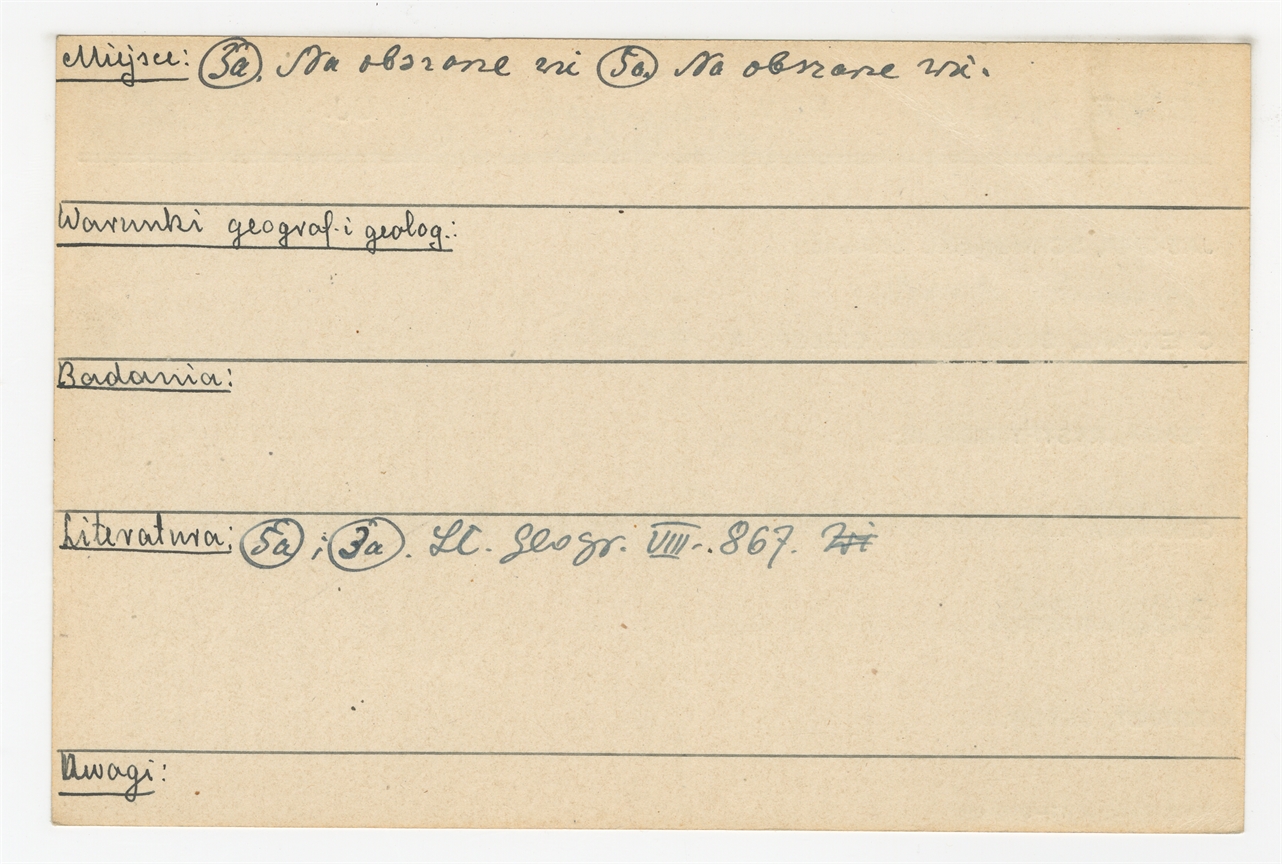 Miejsce: 3a. Na obszarze wsi 5a. Na obszarze wsi.
Warunki geograf. i geolog.:
Badania:
Literatura: 5a ; 3a. Sł. Geogr. VIII. 867.
Uwagi: